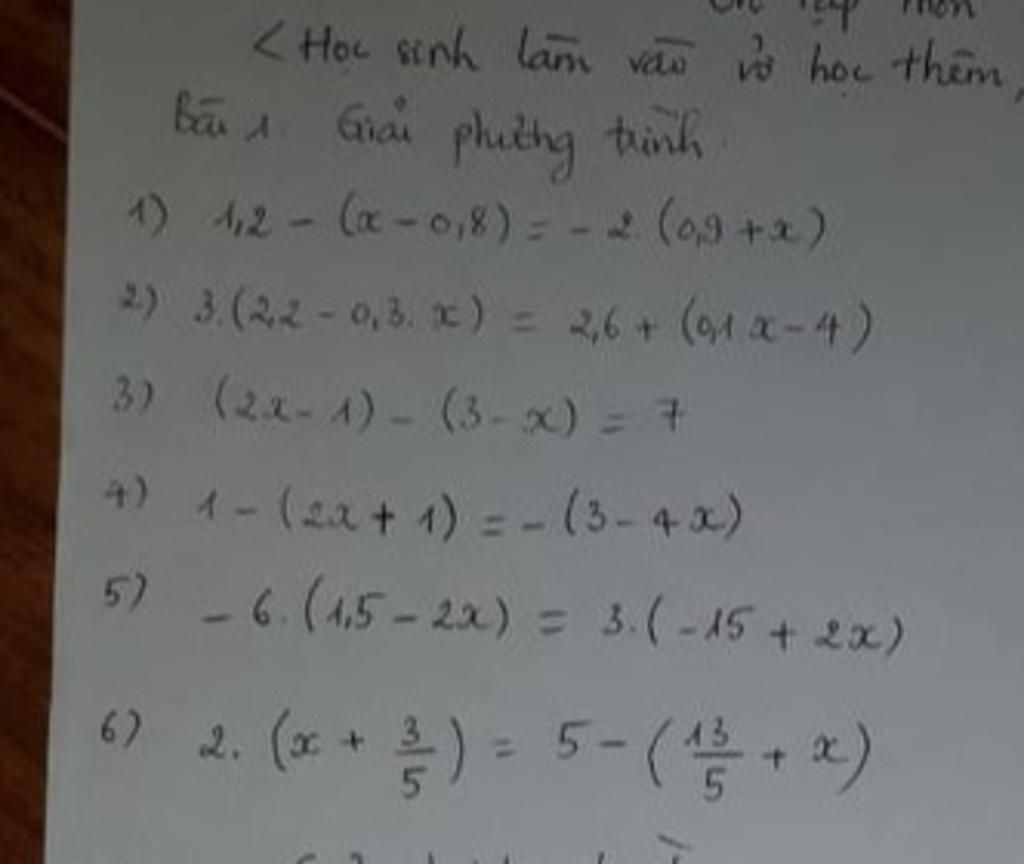 <Học sinh làm vào vở học thêm,
Bài 1. Giải phương trình.
1) 1,2 - (x - 0,8) = - 2. (0,9 + x)
2) 3.(2,2 - 0,3. x) = 2,6 + (0,1 x - 4)
3) (2x - 1) - (3 - x) = 7
4) 1 - (2x + 1) = - (3 - 4x)
5) - 6. (1,5 - 2x) = 3.( -15 + 2x)
6) 2. (x + 3/5) = 5 - (13/5 + x)